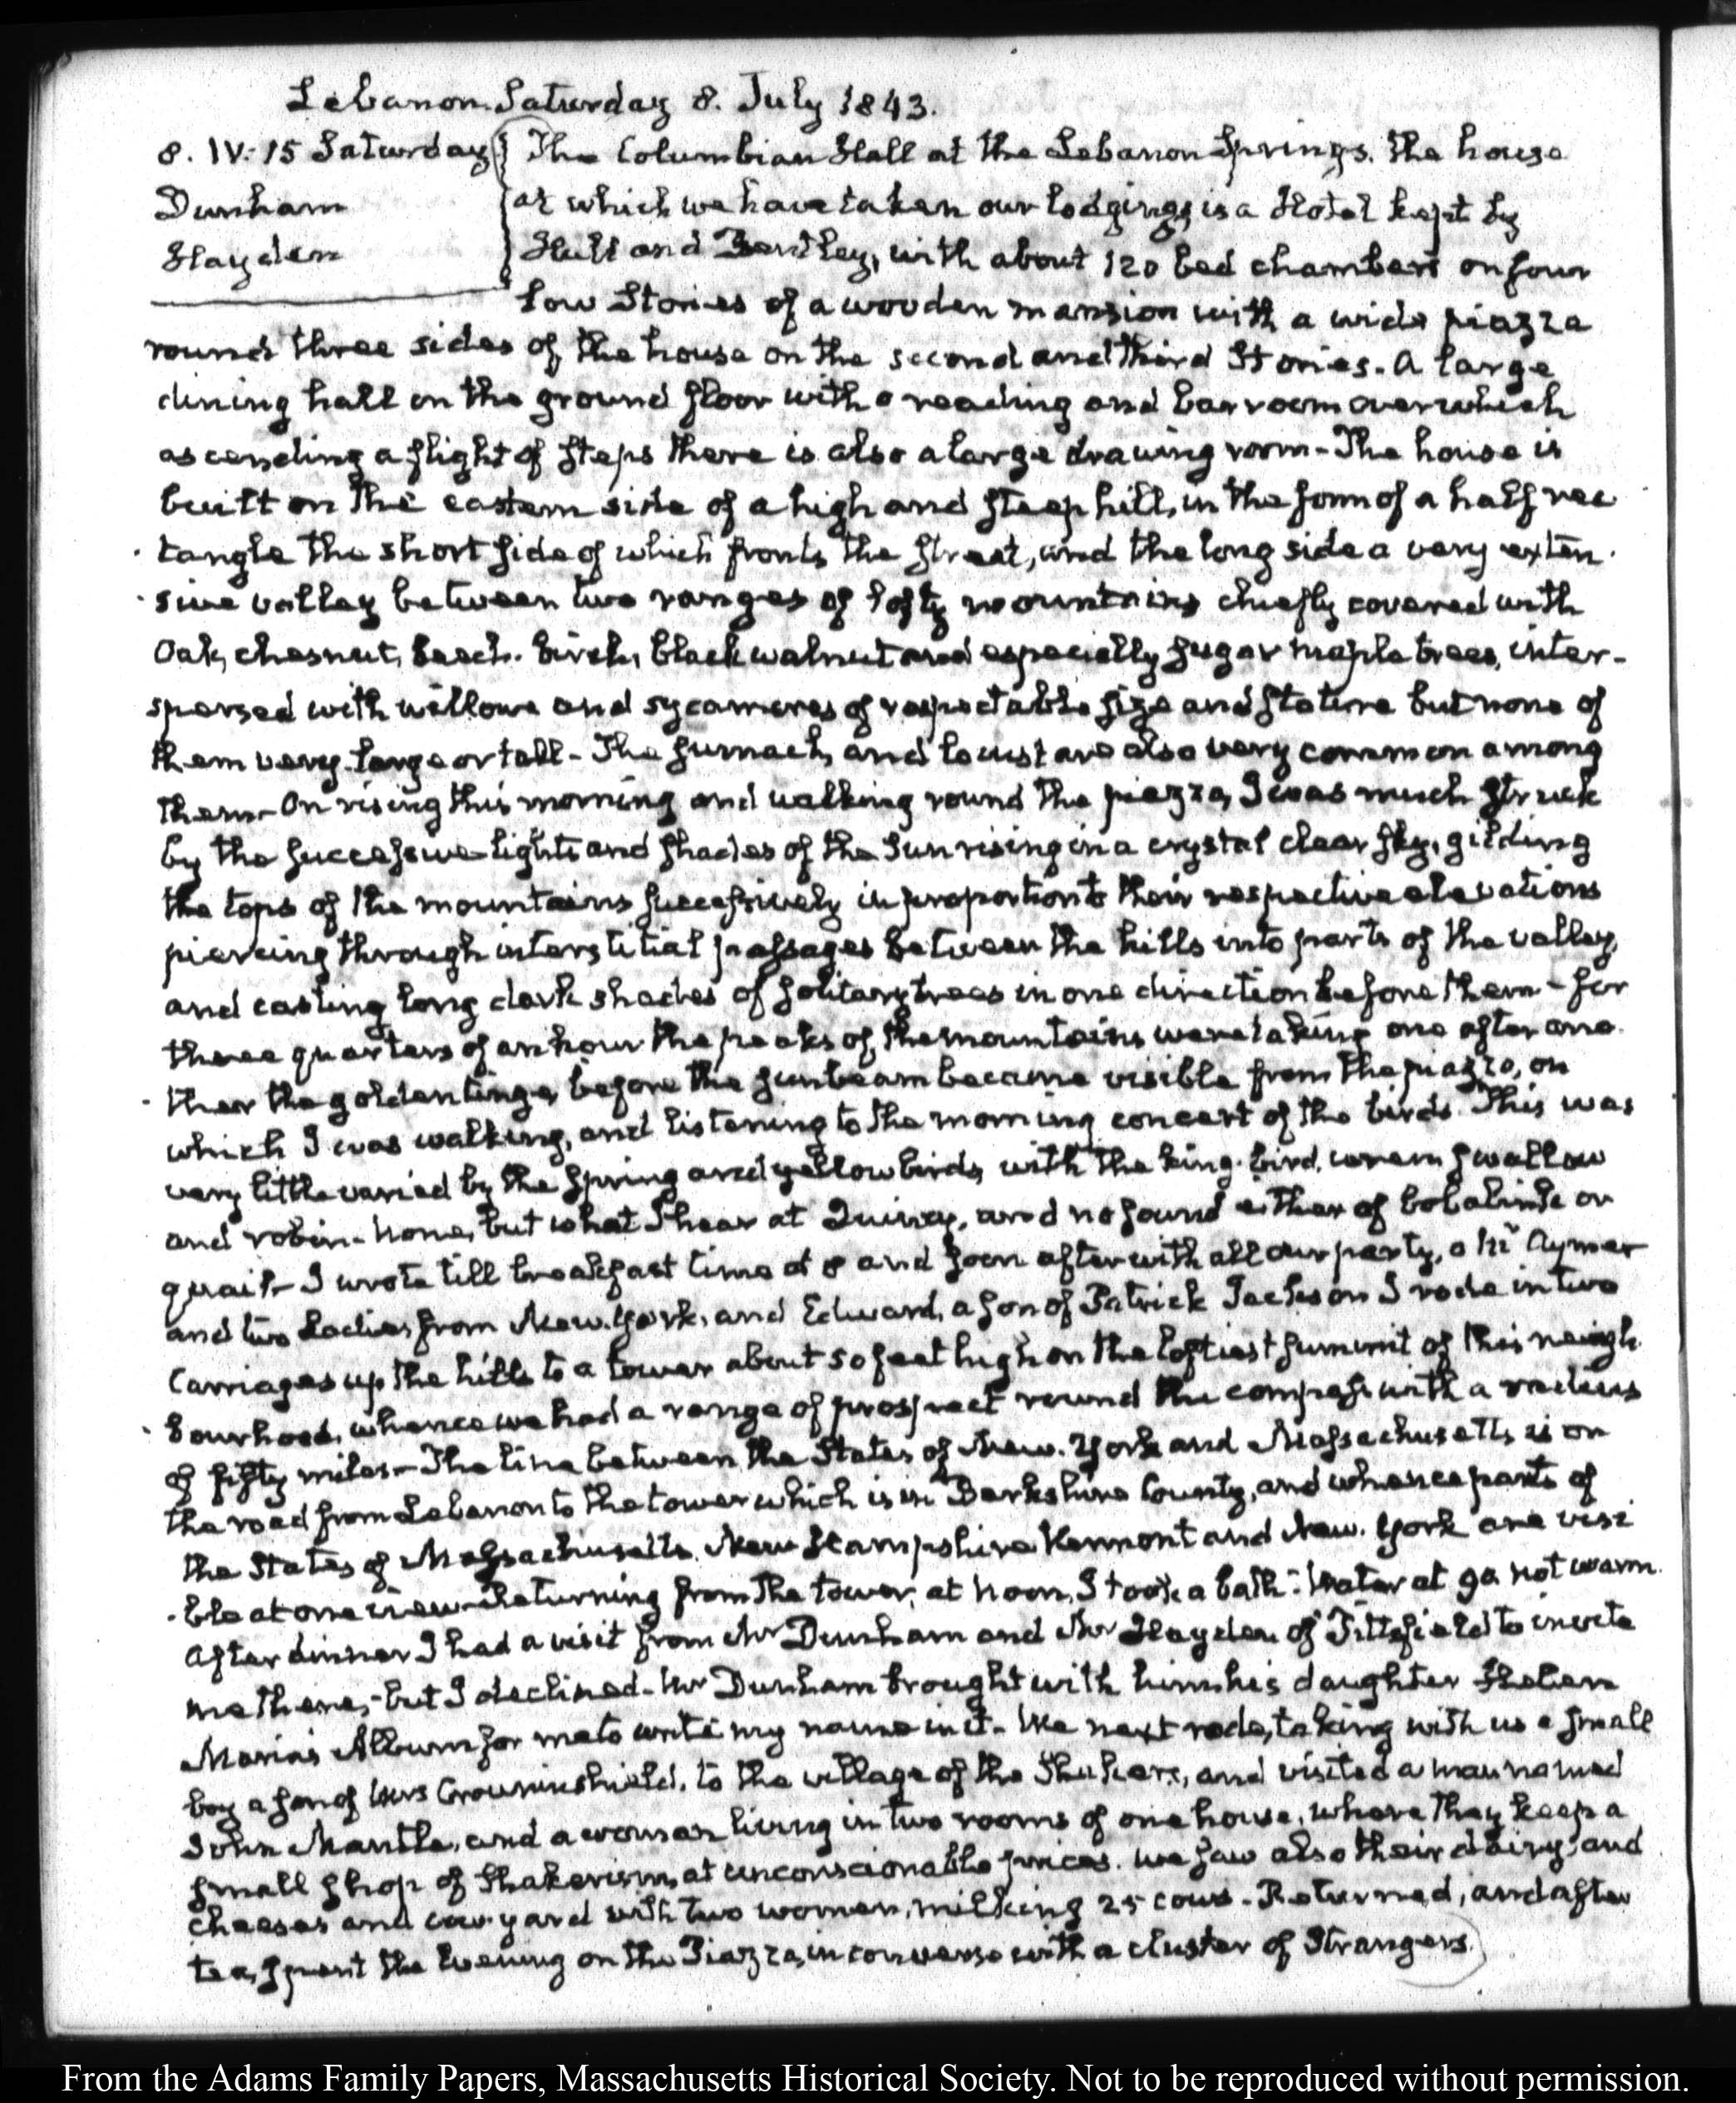 Lebanon Saturday 8. July 1843.
8. IV:15 Saturday
Dunham
Hayden
The Columbian Hall at the Lebanon Springs. The house
at which we have taken our lodgings, is a Hotel kept by
Hull and Bentley, with about 120 bed chambers on four
low Stories of a wooden mansion with a wide piazza
round three sides of the house on the second and third Stories. A large
dining hall on the ground floor with a reading and bar room over which
ascending a flight of steps there is also a large drawing room - The house is
built on the eastern side of a high and steep hill, in the form of a half rec
tangle the short side of which fronts the street, and the long side a very exten
sive valley between two ranges of lofty mountains chiefly covered with
Oak, chesnut, beech. birch, black walnut and especially sugar maple trees, inter-
spersed with willows and sycamores of respectable size and stature but none of
them very large or tall - The sumach, and locust are also very common among
them - On rising this morning and walking round the piazza, I was much struck
by the successive lights and shades of the Sun rising in a crystal clear sky, gilding
the tops of the mountains successively in proportion to their respective elevations
piercing through interstitial passages between the hills into parts of the valley,
and casting long dark shades of solitary trees in one direction before them - for
three quarters of an hour the peaks of the mountains were taking one after ano
ther the golden tinge, before the sunbeam became visible from the piazza, on
which I was walking, and listening to the morning concert of the birds. This was
very little varied by the spring and yellow birds, with the king-bird, wren, swallow
and robin - none, but what I hear at Quincy, and no sound either of bobalink or
quail - I wrote till breakfast time at 8 and soon after with all our party, a Mr Aymar
and two Ladies from New-York, and Edward, a son of Patrick Jackson I rode in two
Carriages up the hills to a tower about 50 feet high on the loftiest summit of this neigh
bourhood, whence we had a range of prospect round the compass with a radius
of fifty miles - The line between the States of New-York and Massachusetts is on
the road from Lebanon to the tower which is in Berkshire County, and whence parts of
the States of Massachusetts, New Hampshire Vermont and New-York are visi
ble at one view - Returning from the tower, at noon, I took a bath. Water at 92 not warm.
After dinner I had a visit from Mr Dunham and Mr Hayden of Pittsfield to invite
me there, - but I declined - Mr Dunham brought with him his daughter Helen
Maria's Album for me to write my name in it - We next rode, taking with us a small
boy a son of Mrs Crowninshield, to the village of the Shakers, and visited a man named
John Mantle, and a woman living in two rooms of one house, where they keep a
small shop of Shakerism, at unconscionable prices. We saw also their dairy, and
cheeses and cow-yard with two women, milking 25 cows - Returned, and after
tea, spent the Evening on the Piazza, in converse with a cluster of Strangers.
From the Adams Family Papers, Massachusetts Historical Society. Not to be reproduced without permission.